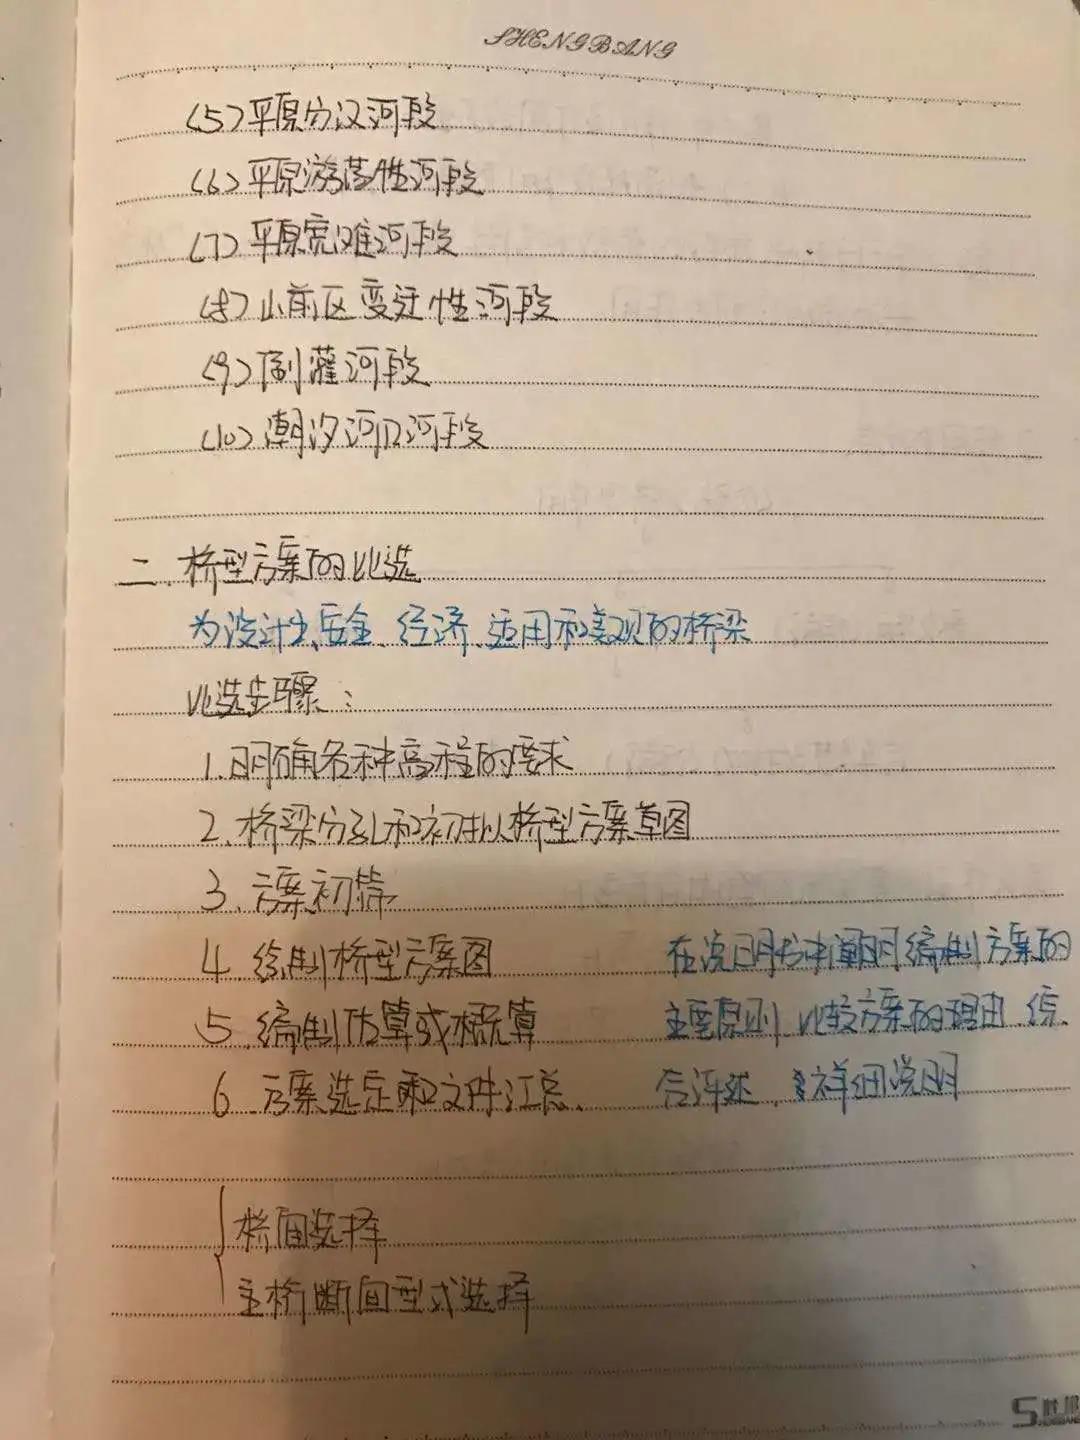 SHENGBANG
(5)平原分汊河段
(6)平原游荡性河段
(7)平原宽滩河段
(8)山前区变迁性河段
(9)倒灌河段
(10)潮汐河口河段
二.桥型方案的比选
为设计出安全、经济、适用和美观的桥梁
比选步骤:
1.明确各种高程的要求
2.桥梁分孔和初拟桥型方案草图
3.方案初筛
4.绘制桥型方案图
在说明书中阐明编制方案的
5.编制估算或概算
主要原则、比较方案的理由、综
6.方案选定和文件汇总.
合评述,详细说明
桥面选择
主桥断面型式选择